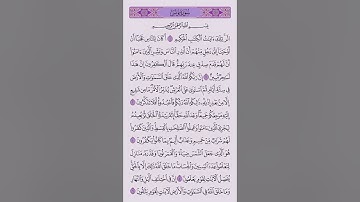 سُورَةُ يُونُسَ
بِسْمِ اللَّهِ الرَّحْمَٰنِ الرَّحِيمِ
الٓر ۚ تِلْكَ ءَايَٰتُ الْكِتَٰبِ الْحَكِيمِ ۝ أَكَانَ لِلنَّاسِ عَجَبًا أَنْ
أَوْحَيْنَآ إِلَىٰ رَجُلٍ مِّنْهُمْ أَنْ أَنذِرِ النَّاسَ وَبَشِّرِ الَّذِينَ ءَامَنُوٓا۟
أَنَّ لَهُمْ قَدَمَ صِدْقٍ عِندَ رَبِّهِمْ ۗ قَالَ الْكَٰفِرُونَ إِنَّ هَٰذَا
لَسَٰحِرٌ مُّبِينٌ ۝ إِنَّ رَبَّكُمُ اللَّهُ الَّذِي خَلَقَ السَّمَٰوَٰتِ وَالْأَرْضَ
فِي سِتَّةِ أَيَّامٍ ثُمَّ اسْتَوَىٰ عَلَى الْعَرْشِ ۖ يُدَبِّرُ الْأَمْرَ ۖ مَا مِن شَفِيعٍ
إِلَّا مِنۢ بَعْدِ إِذْنِهِۦ ۚ ذَٰلِكُمُ اللَّهُ رَبُّكُمْ فَاعْبُدُوهُ ۚ أَفَلَا تَذَكَّرُونَ ۝
إِلَيْهِ مَرْجِعُكُمْ جَمِيعًا ۖ وَعْدَ اللَّهِ حَقًّا ۚ إِنَّهُۥ يَبْدَؤُا۟ الْخَلْقَ ثُمَّ يُعِيدُهُۥ
لِيَجْزِيَ الَّذِينَ ءَامَنُوا۟ وَعَمِلُوا۟ الصَّٰلِحَٰتِ بِالْقِسْطِ ۚ وَالَّذِينَ كَفَرُوا۟
لَهُمْ شَرَابٌ مِّنْ حَمِيمٍ وَعَذَابٌ أَلِيمٌۢ بِمَا كَانُوا۟ يَكْفُرُونَ ۝
هُوَ الَّذِي جَعَلَ الشَّمْسَ ضِيَآءً وَالْقَمَرَ نُورًا وَقَدَّرَهُۥ مَنَازِلَ
لِتَعْلَمُوا۟ عَدَدَ السِّنِينَ وَالْحِسَابَ ۚ مَا خَلَقَ اللَّهُ ذَٰلِكَ إِلَّا بِالْحَقِّ ۚ
يُفَصِّلُ الْءَايَٰتِ لِقَوْمٍ يَعْلَمُونَ ۝ إِنَّ فِي اخْتِلَٰفِ الَّيْلِ وَالنَّهَارِ
وَمَا خَلَقَ اللَّهُ فِي السَّمَٰوَٰتِ وَالْأَرْضِ لَءَايَٰتٍ لِّقَوْمٍ يَتَّقُونَ ۝